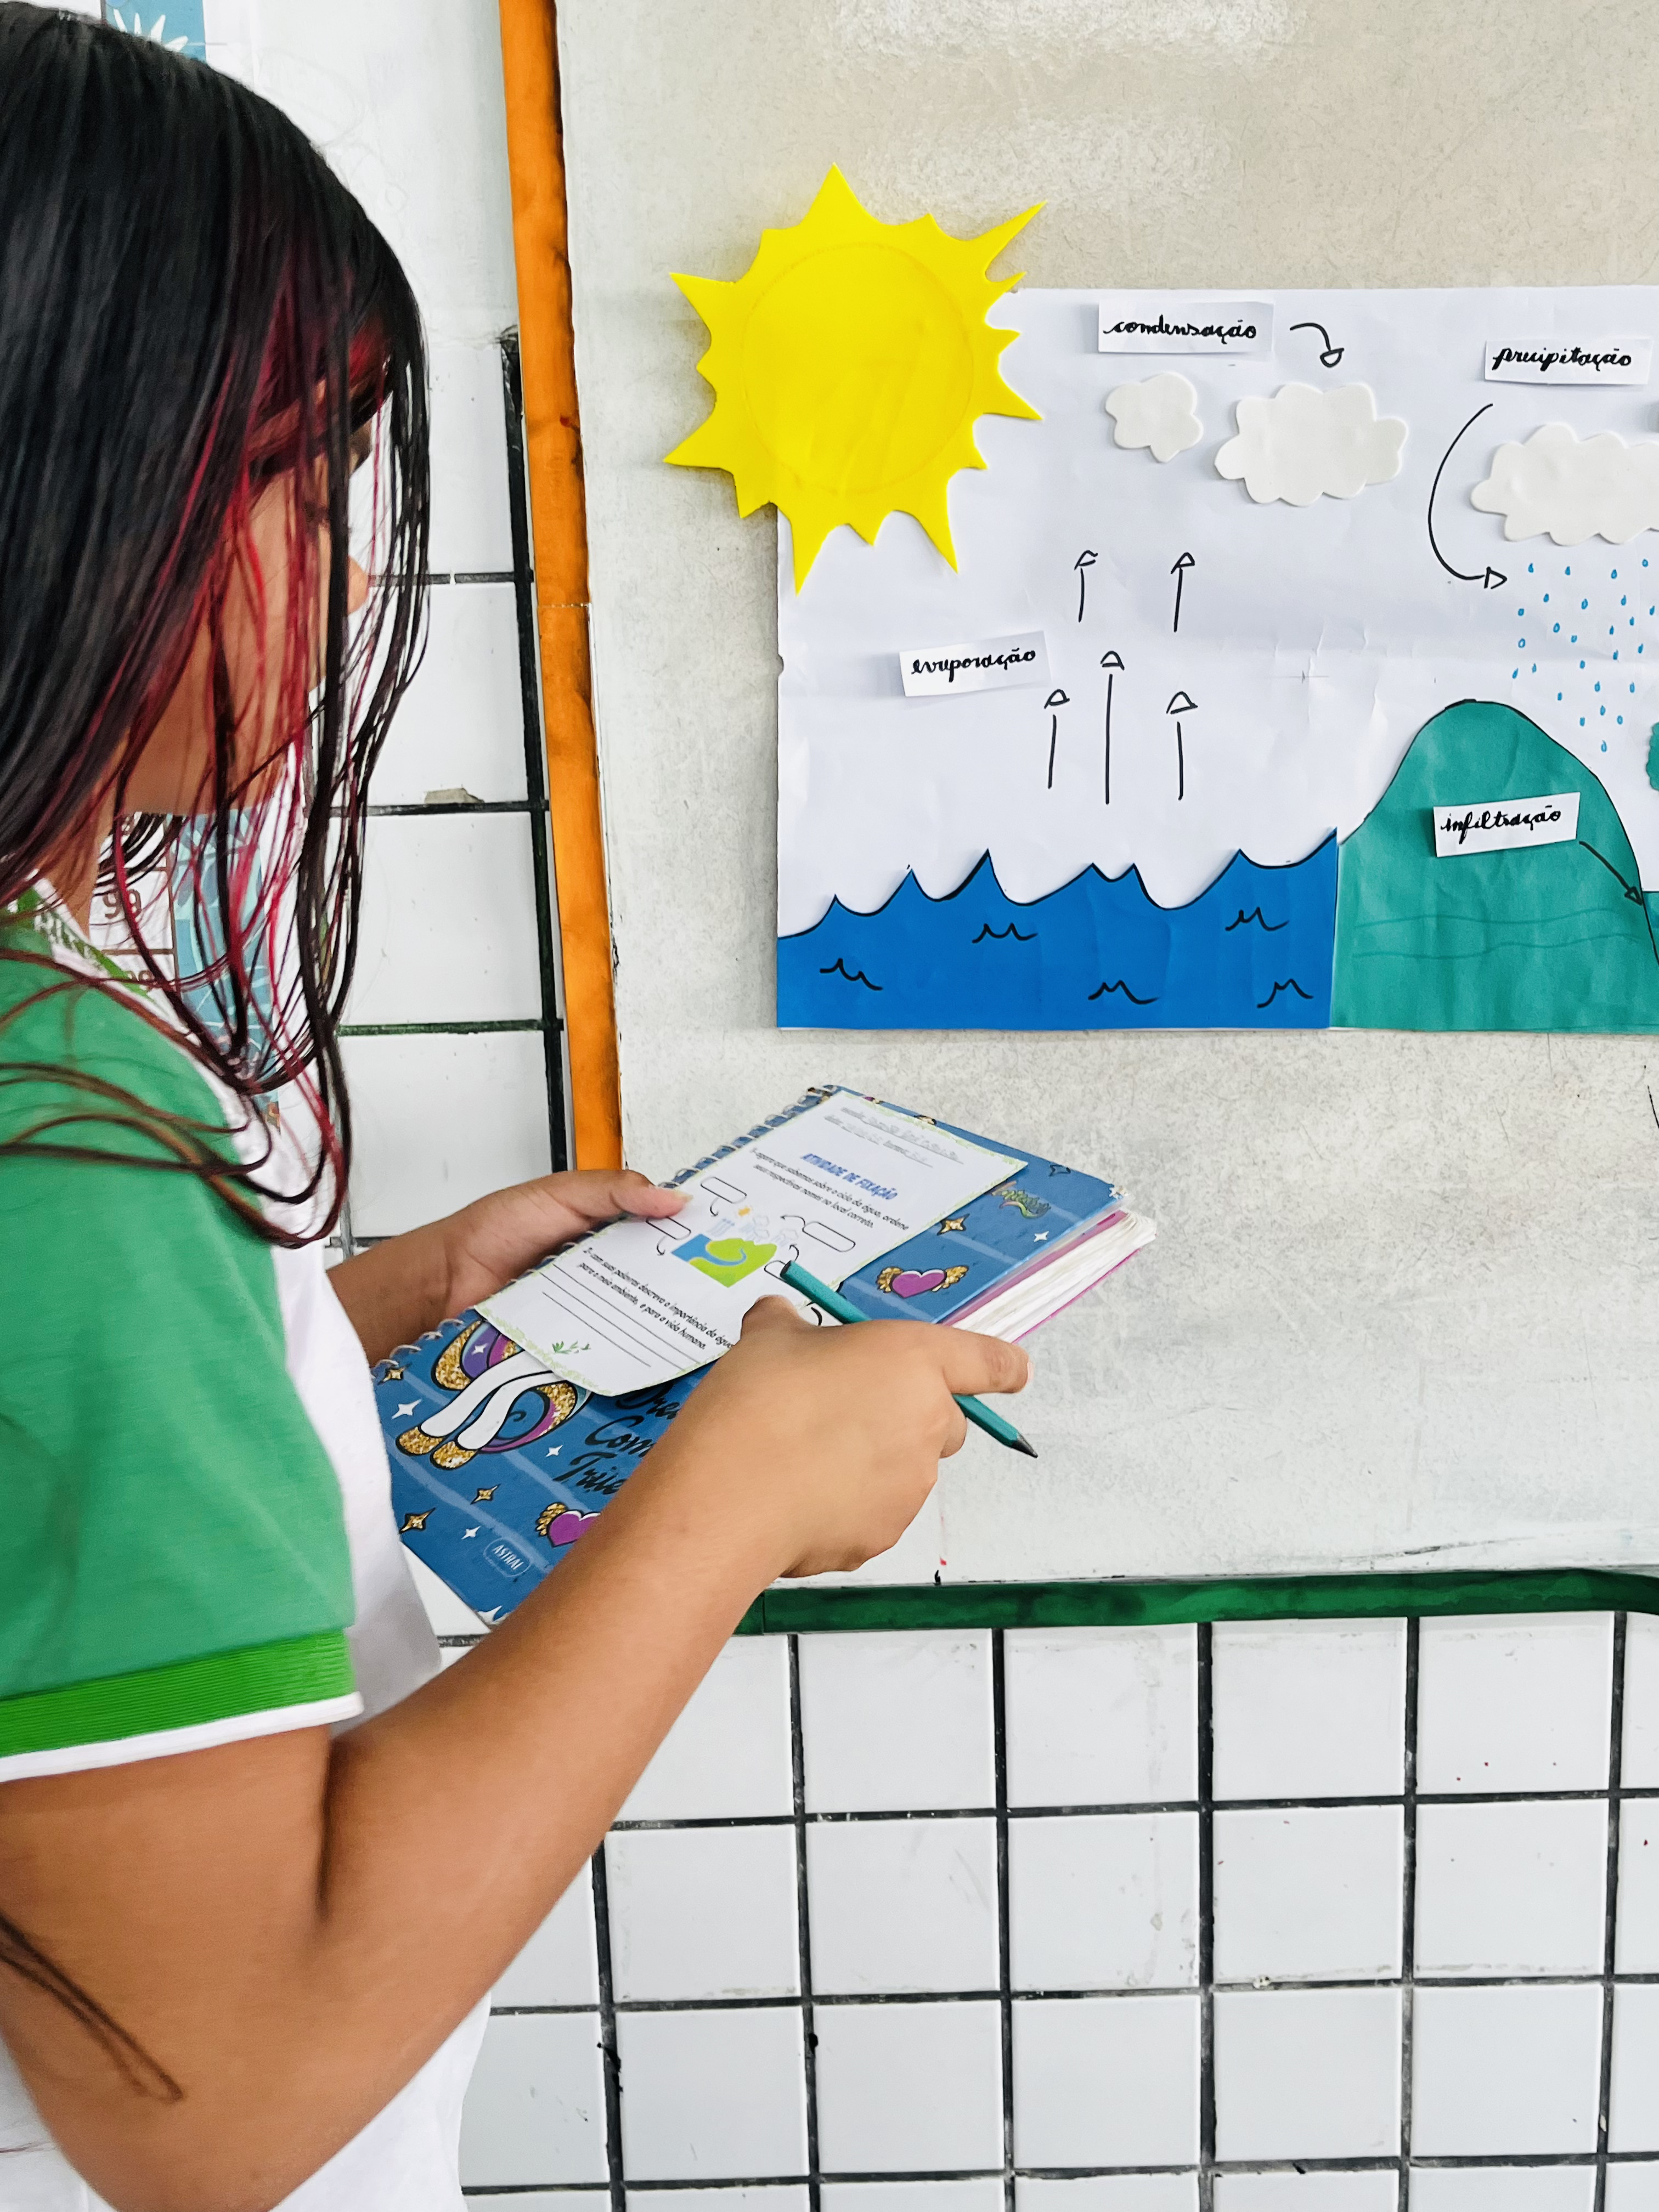 condensação
precipitação
evaporação
infiltração
99
ATIVIDADE DE FIXAÇÃO
1-agora que sabemos sobre o ciclo da água, ordene
seus respectivos nomes no local correto.
2-com suas palavras descreva a importância da água
para o meio ambiente, e para a vida humana.
Com
ASTRAL